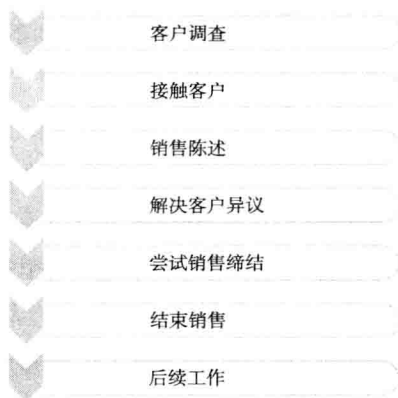 客户调查
接触客户
销售陈述
解决客户异议
尝试销售缔结
结束销售
后续工作